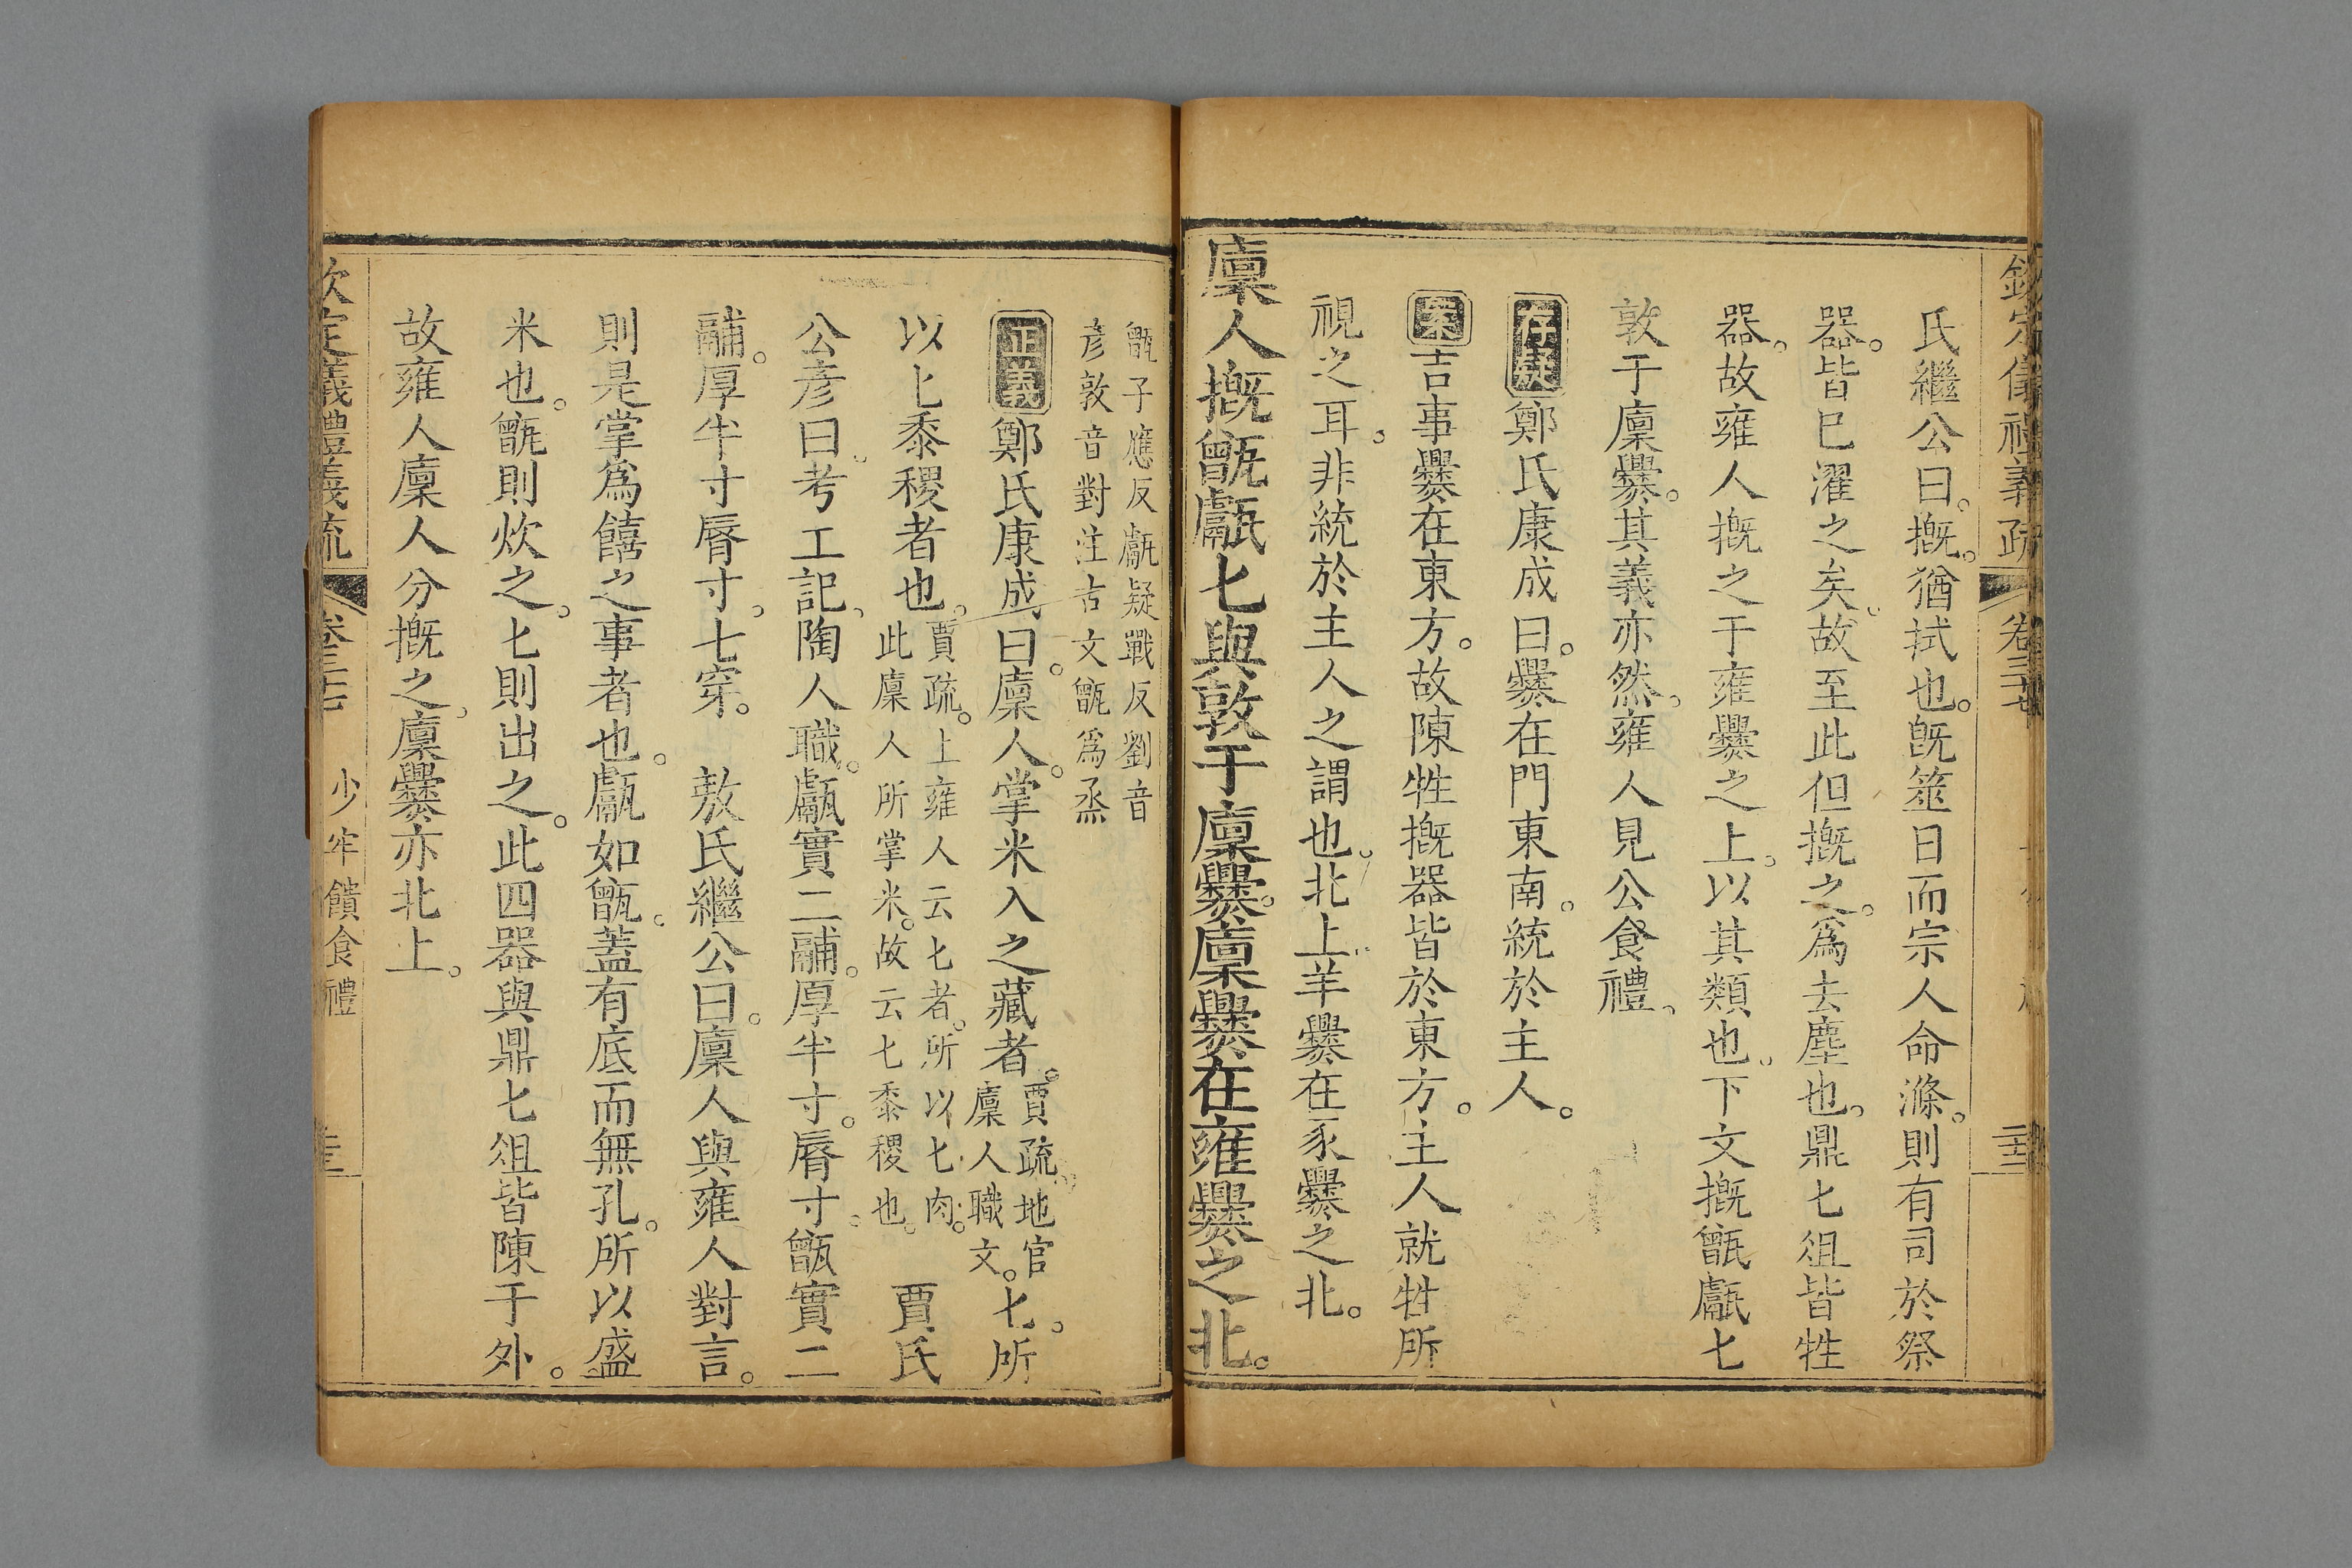 欽定儀禮義疏 卷三十七
氏繼公曰。摡。猶拭也。既筮日而宗人命滌。則有司於祭
器。皆已濯之矣。故至此但摡之。爲去塵也。鼎匕俎皆牲
器。故雍人摡之于雍爨之上。以其類也。下文摡甑甗匕
敦于廩爨。其義亦然。雍人見公食禮。
存疑鄭氏康成曰。爨在門東南。統於主人。
案吉事爨在東方。故陳牲摡器皆於東方。主人就牲所
視之耳。非統於主人之謂也。北上羊爨在豕爨之北。
廩人摡甑甗匕與敦于廩爨。廩爨在雍爨之北。
甑子應反甗疑戰反劉音
彦敦音對注古文甑爲烝
正義鄭氏康成曰。廩人。掌米入之藏者。賈疏。地官廩人職文。匕。所
以匕黍稷者也。賈疏。上雍人云匕者。所以匕肉。此廩人所掌米。故云匕黍稷也。 賈氏
公彦曰。考工記。陶人職。甗實二鬴。厚半寸。脣寸。甑實二
鬴。厚半寸。脣寸。七穿。 敖氏繼公曰。廩人與雍人對言。
則是掌爲饎之事者也。甗如甑。蓋有底而無孔。所以盛
米也。甑則炊之。匕則出之。此四器與鼎匕俎皆陳于外。
故雍人廩人分摡之。廩爨亦北上。
欽定儀禮義疏 卷三十七 少牢饋食禮